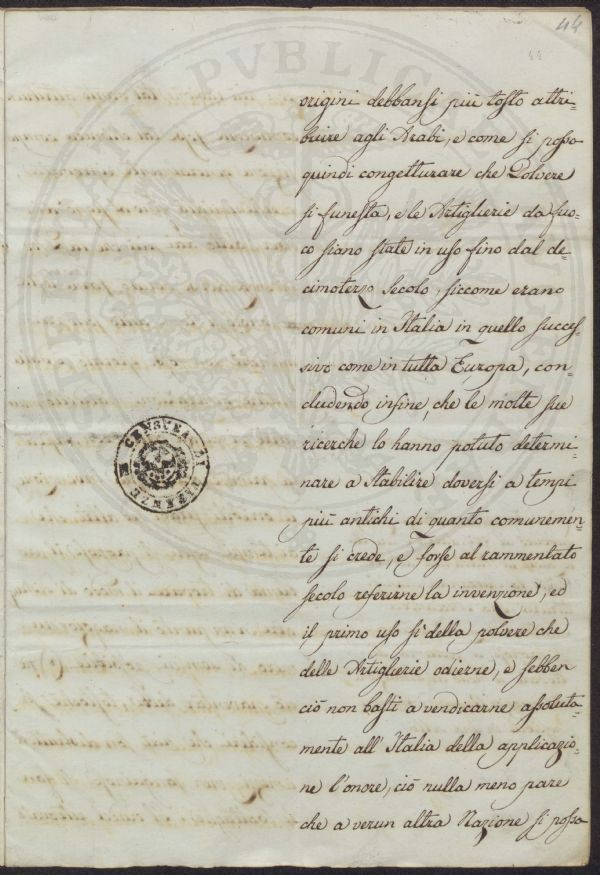 44
44
origini debbansi più tosto attri=
buire agli Arabi, e come si possa
quindi congetturare che Polvere
si funesta, e le Artiglierie da fuo=
co siano state in uso fino dal de=
cimoterzo Secolo, siccome erano
comuni in Italia in quello succes=
sivo come in tutta Europa, con=
cludendo infine, che le molte sue
ricerche lo hanno potuto determi=
nare a stabilire doversi a tempi
più antichi di quanto comunemen=
te si crede, e forse al rammentato
secolo referirne la invenzione, ed
il primo uso sì della polvere che
delle Artiglierie odierne, e sebben
ciò non basti a vendicarne assoluta=
mente all'Italia della applicazio=
ne l'onore, ciò nulla meno pare
che a verun altra Nazione si possa
CENSURA DI FIRENZE